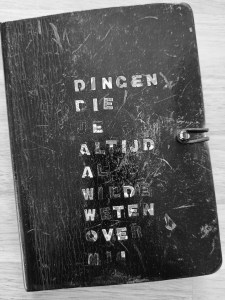 DINGEN
DIE
JE
ALTIJD
AL
WILDE
WETEN
OVER